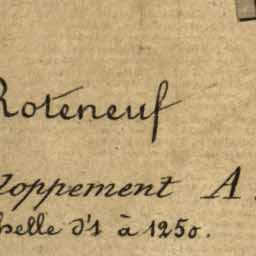 Roteneuf
loppement A
helle d'1 à 1250.